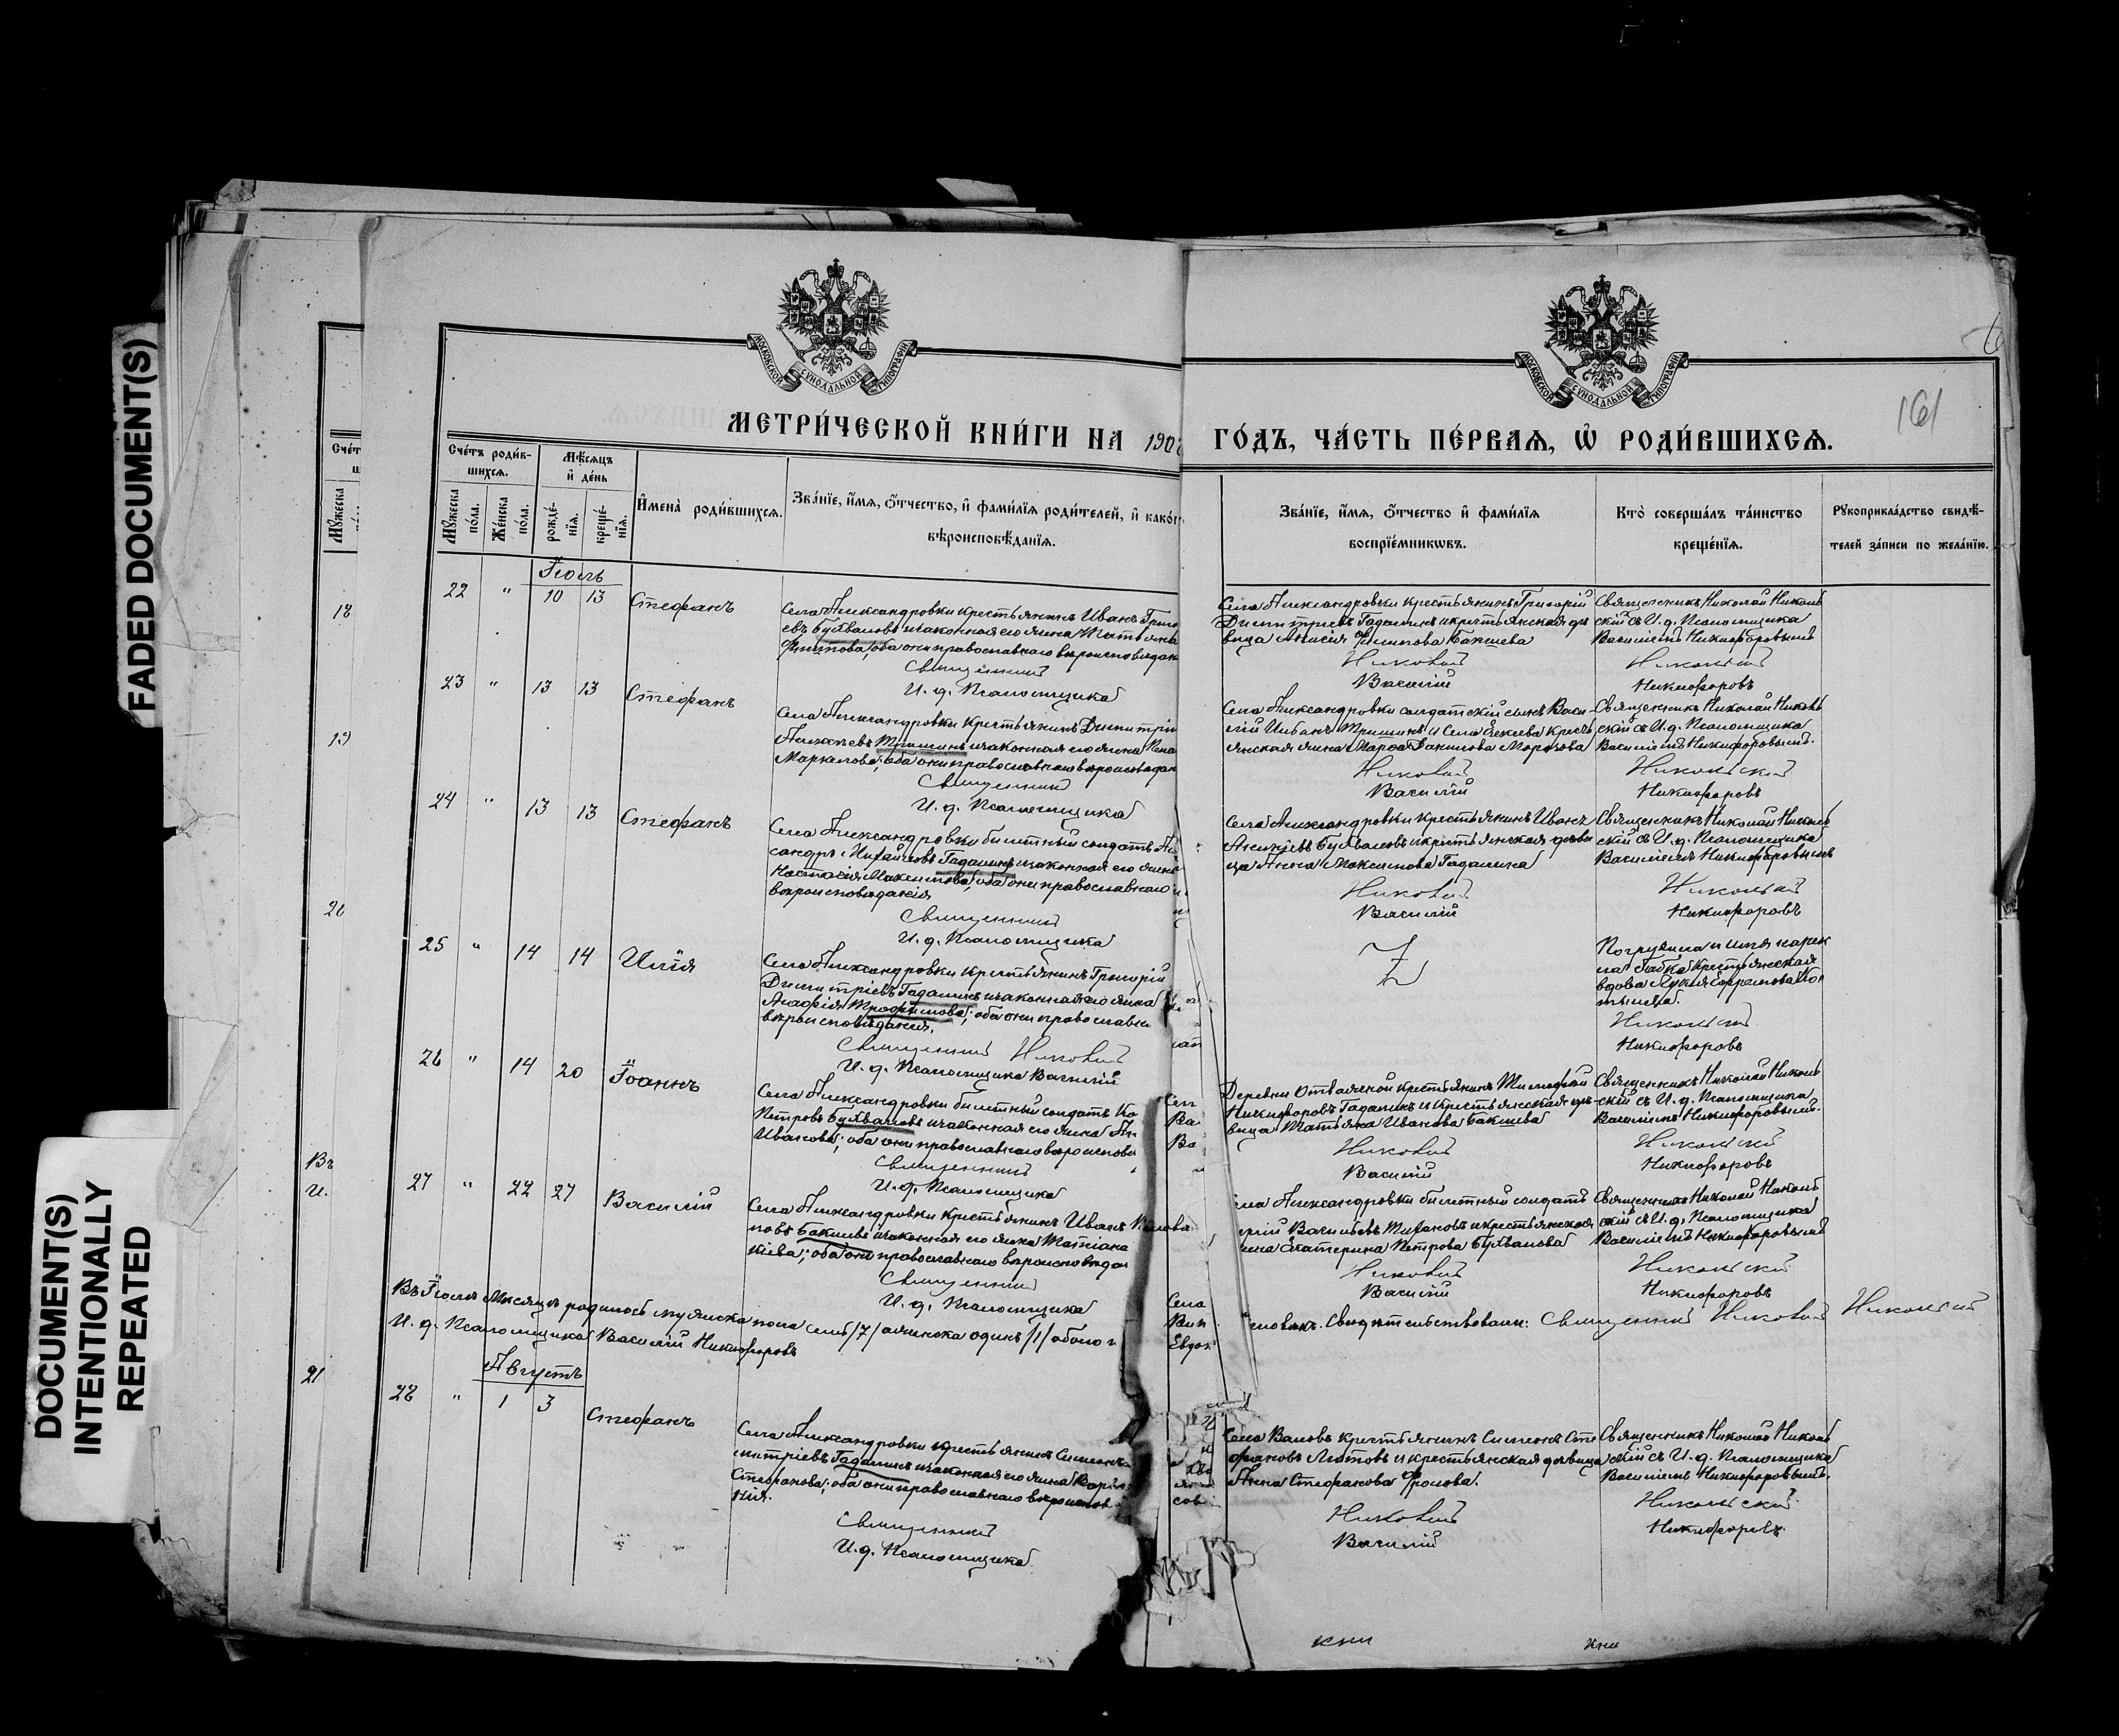 FADED DOCUMENT(S)
DOCUMENT(S)
INTENTIONALLY
REPEATED
МОСКОВСКОЙ СѴНОДАЛЬНОЙ ТИПОГРАФІИ
МОСКОВСКОЙ СѴНОДАЛЬНОЙ ТИПОГРАФІИ
161
МЕТРИ́ЧЕСКОЙ КНИ́ГИ НА 190
ГО́ДЪ, ЧА́СТЬ ПЕ́РВАѦ, Ѡ҆ РОДИ́ВШИХСѦ.
Сче́тъ роди́в-
шихсѧ.
Мꙋ́жеска по́ла.
Же́нска по́ла.
Мѣ́сѧцъ
и҆ де́нь
рожде́-
нїѧ.
креще́-
нїѧ.
И҆мена̀ роди́вшихсѧ.
Зва́нїе, и҆́мѧ, ѻ҆́тчество, и҆ фами́лїѧ роди́телей, и҆
вѣроисповѣ́данїѧ.
Зва́нїе, и҆́мѧ, ѻ҆́тчество и҆ фами́лїѧ
воспрїе́мникѡвъ.
Кто̀ соверша́лъ та́инство
креще́нїѧ.
Рꙋкоприкла́дство свидѣ́-
телей за́писи по жела́нїю.
18
19
20
21
Іюль
22 " 10 13 Стефанъ
Села Александровки крестьянинъ Иванъ Григо
евъ Бухваловъ и законная его жена Татьяна
Филипова, оба они православнаго вѣроисповѣдан
Священникъ
И. д. Псаломщика
Села Александровки крестьянинъ Григорій
Димитріевъ Гадалинъ и крестьянская дѣ
вица Анисія Филипова Бакшева
Николай
Василій
Священникъ Николай Николь
скій съ И. д. Псаломщика
Василіемъ Никифоровымъ
Никольскій
Никифоровъ
23 " 13 13 Стефанъ
Села Александровки Крестьянинъ Димитрій
Алексѣевъ Тришинъ и законная его жена
Маркелова, оба они православнаго вѣроисповѣдан
Священникъ
И. д. Псаломщика
Села Александровки солдатскій сынъ Васи-
лій Тришинъ и Села кресть
янская жена Марѳа Морозова
Николай
Василій
Священникъ Николай Николь
скій съ И. д. Псаломщика
Василіемъ Никифоровымъ.
Никольскій
Никифоровъ
24 " 13 13 Стефанъ
Села Александровки билетный солдатъ Ал
сандръ Михайловъ Гадалинъ и законная его жена
Настасія Максимова, оба они православнаго
вѣроисповѣданія
Священникъ
И. д. Псаломщика
Села Александровки крестьянинъ Иванъ
Алексѣевъ Бухваловъ и крестьянская дѣви
ца Анна Максимова Гадалина
Николай
Василій
Священникъ Николай Николь
скій съ И. д. Псаломщика
Василіемъ Никифоровымъ
Никольскій
Никифоровъ
25 " 14 14 Илія
Села Александровки Крестьянинъ Григорій
Димитріевъ Гадалинъ и законная его жена
Агафія Трофимова, оба они православн
вѣроисповѣданія.
Священникъ Николай
И. д. Псаломщика Василій
Погрузила и имя нарек
ла бабка крестьянская
вдова Лукія Ефремова
Никольскій
Никифоровъ
26 " 14 20 Іоаннъ
Села Александровки билетный солдатъ
Петровъ Бухваловъ и законная его жена
Иванова, оба они православнаго вѣроиспов
Священникъ
И. д. Псаломщика
Деревни крестьянинъ Тимофей
Никифоровъ Гадалинъ и крестьянская дѣ-
вица Татьяна Иванова Бакшева
Николай
Василій
Священникъ Николай Николь
скій съ И. д. Псаломщика
Василіемъ Никифоровымъ.
Никольскій
Никифоровъ
27 " 22 27 Василій
Села Александровки крестьянинъ Иванъ
повъ Бакшевъ и законная его жена Татіана
кіева; оба они православнаго вѣроисповѣдан
Священникъ
И. д. Псаломщика
Села Александровки билетный солдатъ
Васильевъ и крестьянская
жена Екатерина Петрова Бухвалова
Николай
Василій
Священникъ Николай Николь
скій съ И. д. Псаломщика
Василіемъ Никифоровымъ
Никольскій
Никифоровъ
Въ Іюлѣ мѣсяцѣ родилось мужска пола семь /7/ а женска одинъ /1/ обоего
человѣкъ. Свидѣтельствовали: Священникъ Николай Никольскій
И. д. Псаломщика Василій Никифоровъ
Августъ
28 " 1 3 Стефанъ
Села Александровки крестьянинъ Симеонъ
митріевъ Гадалинъ и законная его жена
Стефанова; оба они православнаго вѣроиспов
нія.
Священникъ
И. д. Псаломщика
Села крестьянинъ Симеонъ Сте
фановъ и крестьянская дѣвица
Анна Стефанова Фролова.
Николай
Василій
Священникъ Николай Николь
скій съ И. д. Псаломщика
Василіемъ Никифоровымъ.
Никольскій
Никифоровъ